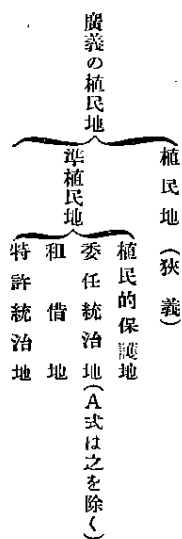 廣義の植民地
植民地（狹義）
準植民地
植民的保護地
委任統治地（A式は之を除く）
和借地
特許統治地